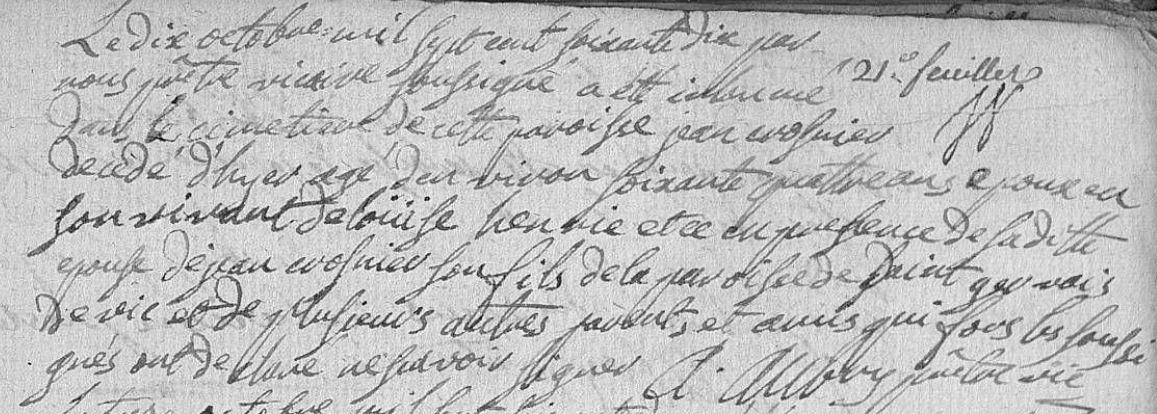 Le dix octobre mil sept cent soixante dix par
nous prêtre vicaire soussigné a ette inhumé
21e feuillet
dans le cimetiere de cette paroisse jean crosnier
decedé d'hyer agé d'environ soixante quattre ans epoux en
son vivant de loüise henrie et ce en presence de saditte
epouse de jean crosnier son fils de la paroisse de Saint gervais
de vic et de plusieurs autres parents et amis qui fors les soussi
gnés ont declaré ne savoir signer A. Aubry prêtre vic
octobre mil sept cent